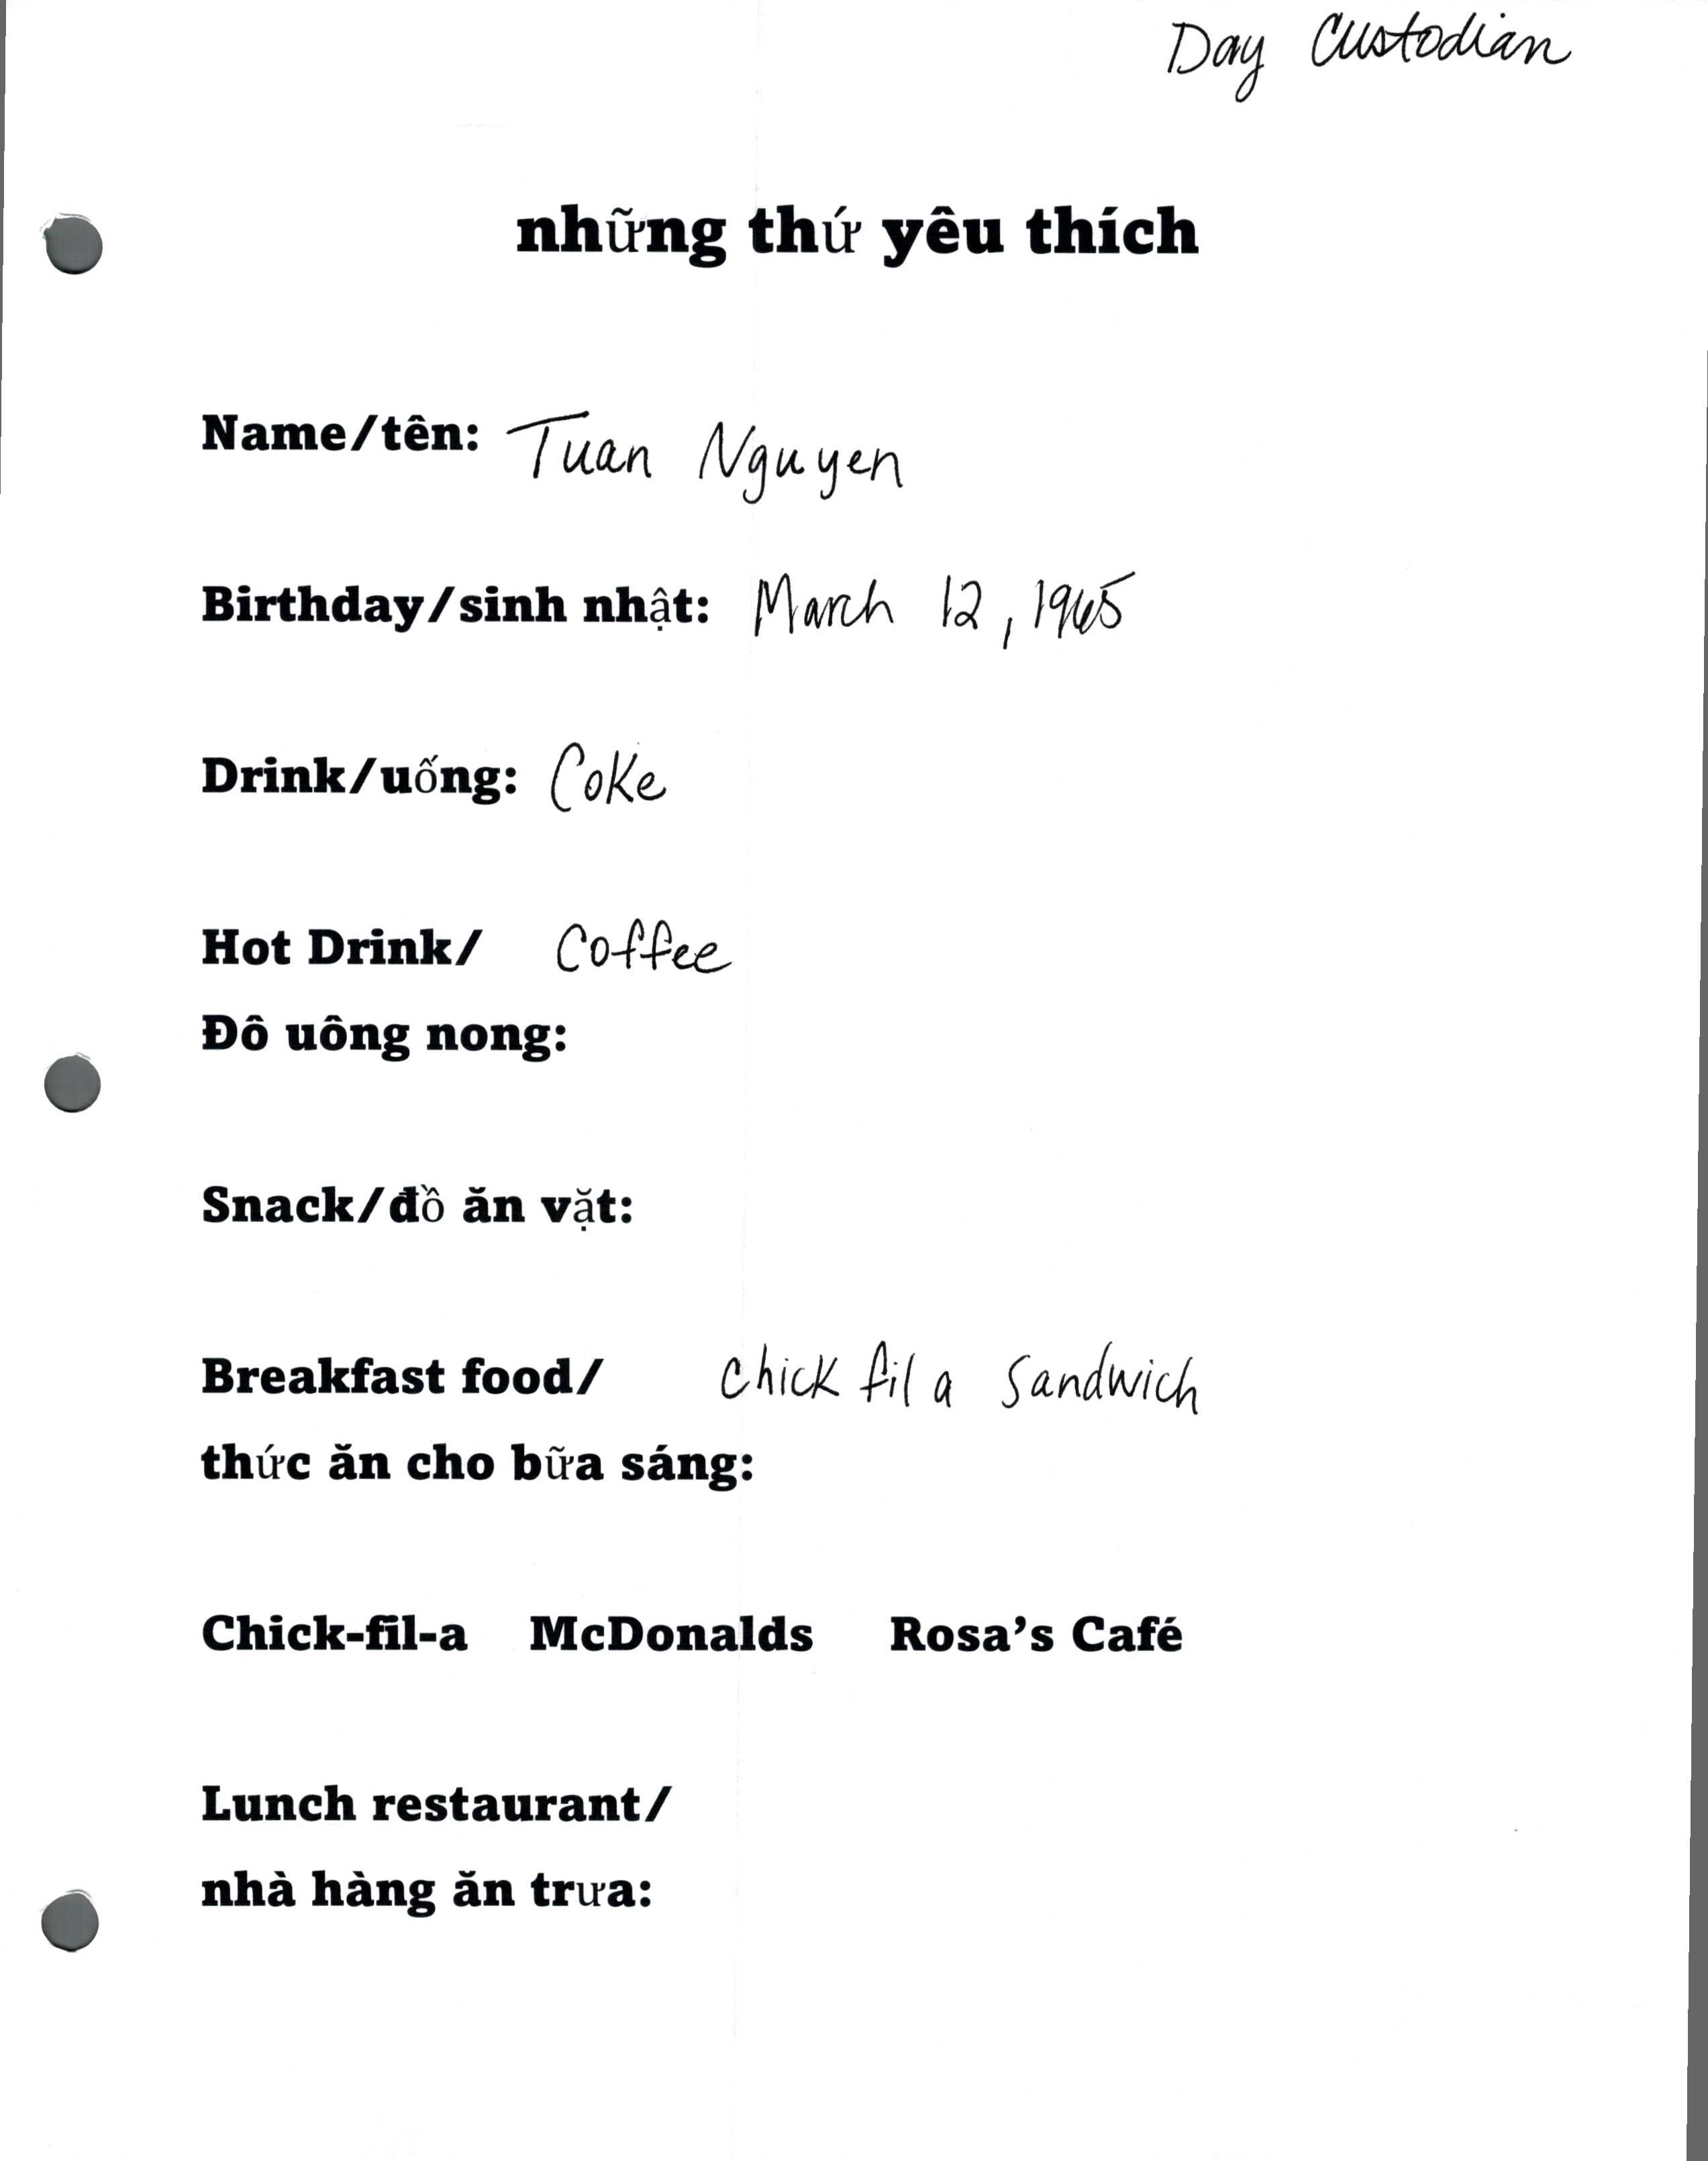 Day Custodian
những thứ yêu thích
Name/tên: Tuan Nguyen
Birthday/sinh nhật: March 12, 1965
Drink/uống: Coke
Hot Drink/ Coffee
Đô uông nong:
Snack/đồ ăn vặt:
Breakfast food/ Chick fil a Sandwich
thức ăn cho bữa sáng:
Chick-fil-a McDonalds Rosa's Café
Lunch restaurant/
nhà hàng ăn trưa: